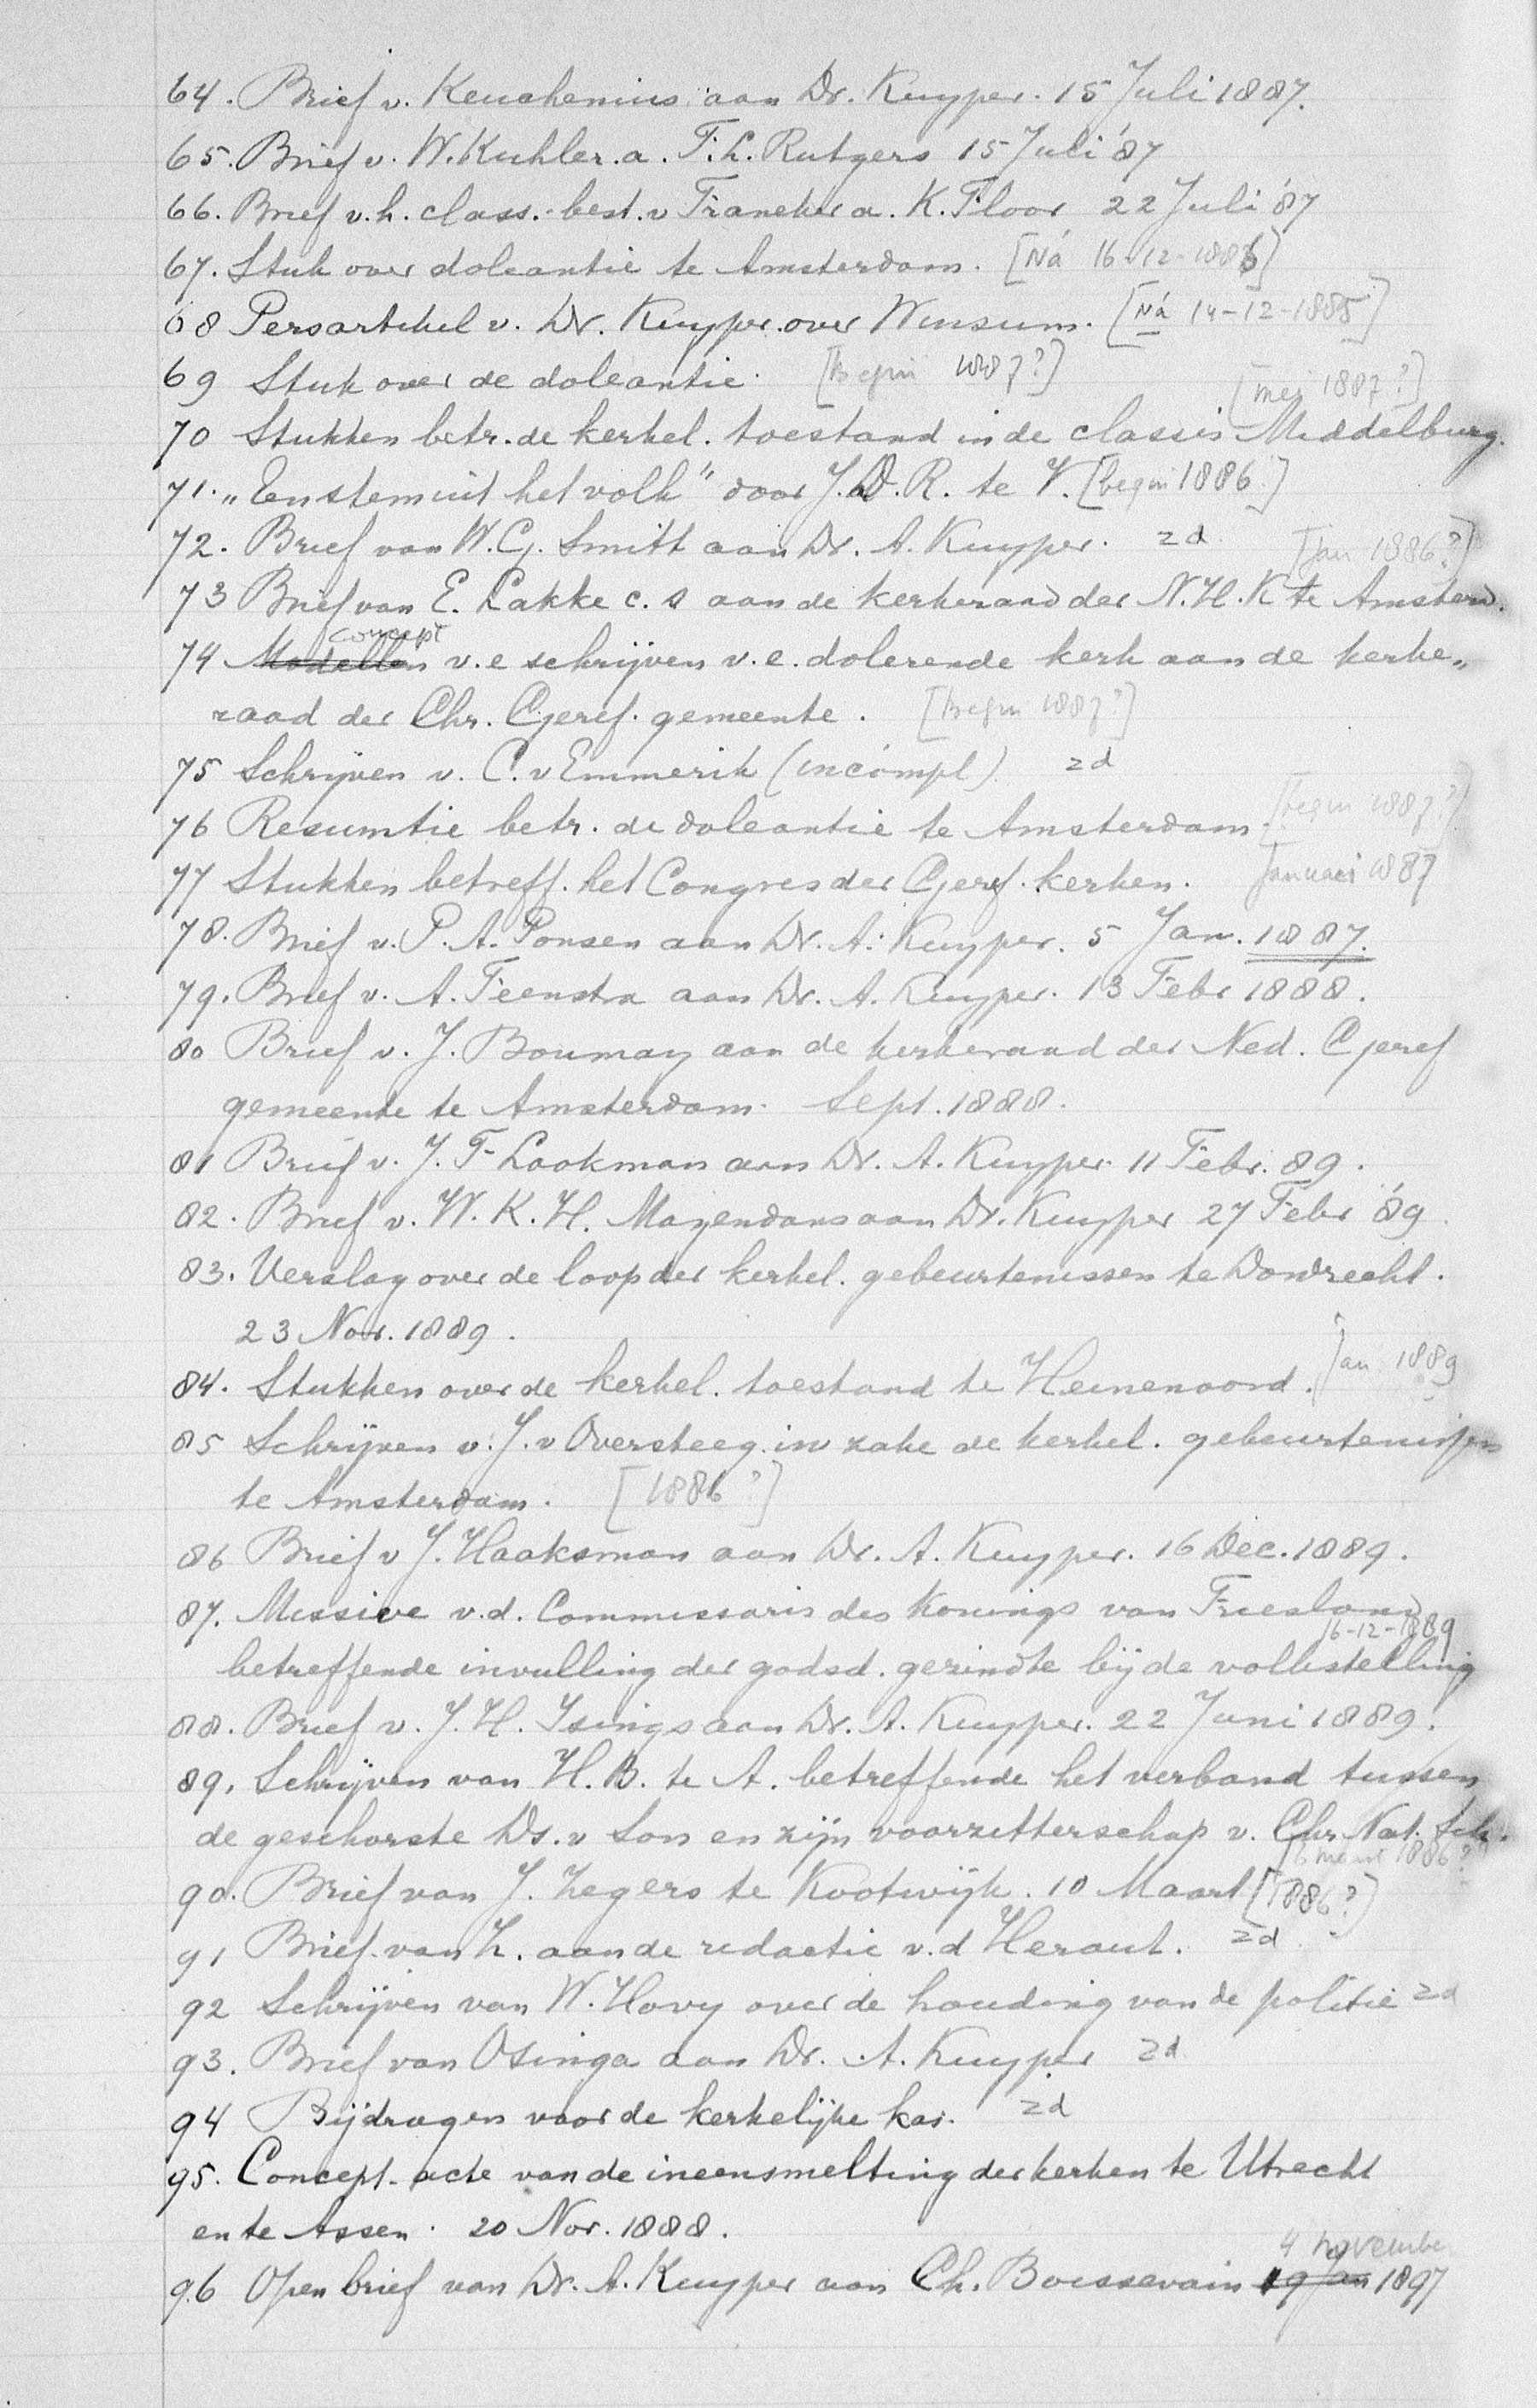 64. Brief v. Keuchenius aan Dr. Kuyper. 15 Juli 1887.
65. Brief v. W. Kuhler. a. F. L. Rutgers 15 Juli '87
66. Brief v. h. class. best. v Franeker a. K. Floor 22 Juli '87
67. Stuk over doleantie te Amsterdam. [Ná 16-12-1886]
68 Persartikel v. Dr. Kuyper over Winsum. [Ná 14-12-1885]
69 Stuk over de doleantie. [Begin 1887?]
[mei 1887?]
70 Stukken betr. de kerkel. toestand in de classis Middelburg.
71. "Een stem uit het volk" door J. D. R. te V. [begin 1886]
72. Brief van W. G. Smitt aan Dr. A. Kuyper. zd
[Jan 1886?]
73 Brief van E. Lakke c. s aan de kerkeraad der N. H. K te Amsterd.
concept
74 Modellen v. e schrijven v. e. dolerende kerk aan de kerke„
raad der Chr. Geref. gemeente. [Begin 1887?]
75 Schrijven v. C. v Emmerik (incompl). zd
76 Resumtie betr. de doleantie te Amsterdam. [begin 1887?]
77 Stukken betreff. het Congres der Geref. kerken. Januari 1887
78. Brief v. P. A. Ponsen aan Dr. A. Kuyper. 5 Jan. 1887.
79. Brief v. A. Feenstra aan Dr. A. Kuyper. 13 Febr 1888.
80 Brief v. J. Boumaz aan de kerkeraad der Ned. Geref
gemeente te Amsterdam. Sept. 1888.
81 Brief v. J. F. Lookman aan Dr. A. Kuyper. 11 Febr. 89.
82. Brief v. W. K. H. Mazendans aan Dr. Kuyper 27 Febr '89
83. Verslag over de loop der kerkel. gebeurtenissen te Dordrecht.
23 Nov. 1889.
84. Stukken over de kerkel. toestand te Heinenoord. Jan 1889
85 Schrijven v. J. v Oversteeg. in zake de kerkel. gebeurtenissen
te Amsterdam. [1886?]
86 Brief v J. Haaksman aan Dr. A. Kuyper. 16 Dec. 1889.
87. Missive v. d. Commissaris des Konings van Friesland
16-12-1889
betreffende invulling der godsd. gezindte bij de volkstelling
88. Brief v. J. H. Isings aan Dr. A. Kuyper. 22 Juni 1889.
89. Schrijven van H. B. te A. betreffende het verband tussen
de geschorste Ds. v Son en zijn voorzitterschap v. Chr. Nat. Sch.
6 maart 1886?
90. Brief van J. Zegers te Kootwijk. 10 Maart [1886?]
91 Brief van Z. aan de redactie v. d Heraut. zd
92 Schrijven van W. Hovy over de houding van de politie zd
93. Brief van Osinga aan Dr. A. Kuyper zd
94 Bijdragen voor de kerkelijke kas. zd
95. Concept-acte van de ineensmelting der kerken te Utrecht
en te Assen. 20 Nov. 1888.
4 november
96 Open brief van Dr. A. Kuyper aan Ch. Boissevain 19 Jan 1897